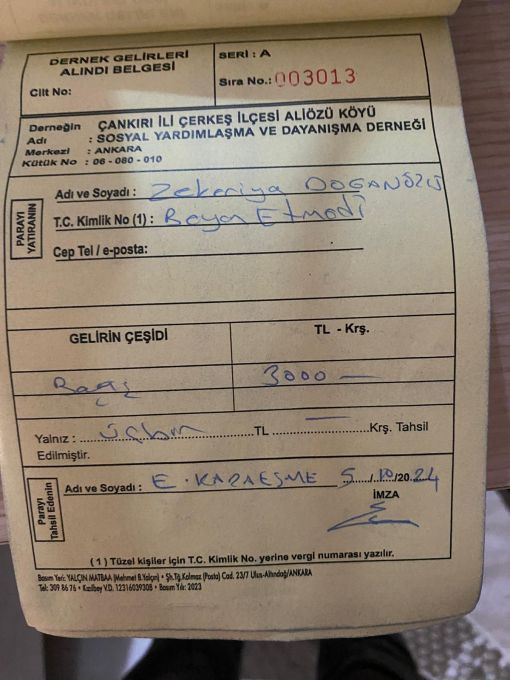 DERNEK GELİRLERİ
ALINDI BELGESİ
Cilt No:
SERİ : A
Sıra No.: 003013
Derneğin ÇANKIRI İLİ ÇERKEŞ İLÇESİ ALİÖZÜ KÖYÜ
Adı : SOSYAL YARDIMLAŞMA VE DAYANIŞMA DERNEĞİ
Merkezi : ANKARA
Kütük No : 06 - 080 - 010
PARAYI YATIRANIN
Adı ve Soyadı : Zekeriya DOĞANÖZÜ
T.C. Kimlik No (1) : Beyan Etmedi
Cep Tel / e-posta:
GELİRİN ÇEŞİDİ TL - Krş.
Bağış 3000 —
Yalnız : üçbin TL — Krş. Tahsil
Edilmiştir.
Parayı Tahsil Edenin
Adı ve Soyadı : E. KARAEŞME 5/10/2024
İMZA
(1) Tüzel kişiler için T.C. Kimlik No. yerine vergi numarası yazılır.
Basım Yeri: YALÇIN MATBAA (Mehmet B.Yalçın) • Şh.Tğ.Kalmaz (Posta) Cad. 23/7 Ulus-Altındağ/ANKARA
Tel: 309 86 76 • Kazılbey V.D. 12316039308 • Basım Yılı: 2023